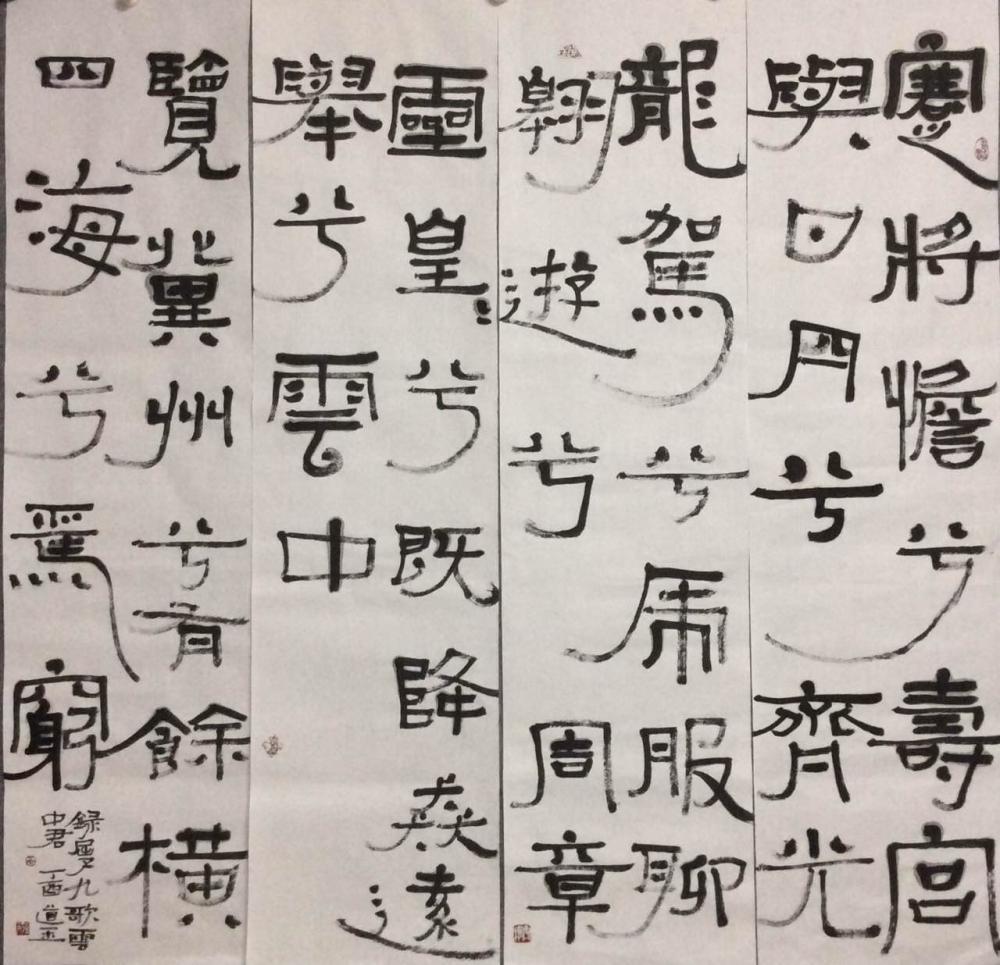 蹇將憺兮壽宮
與日月兮齊光
龍駕兮帝服聊
翱遊兮周章
靈皇〻兮既降猋遠
舉兮雲中
覽冀州兮有餘橫
四海兮焉窮
錄屈子九歌雲
中君 丁酉道玉